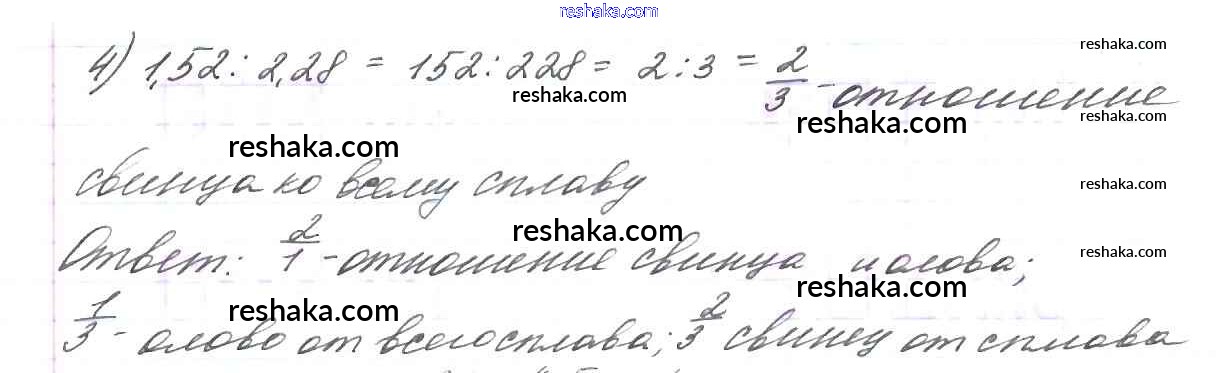 reshaka.com
4) 1,52 : 2,28 = 152 : 228 = 2 : 3 = 2/3 - отношение
reshaka.com
reshaka.com
reshaka.com
reshaka.com
reshaka.com
свинца ко всему сплаву
reshaka.com
reshaka.com
Ответ: 2/1 - отношение свинца и олова;
reshaka.com
reshaka.com
reshaka.com
1/3 - олово от всего сплава; 2/3 свинец от сплава